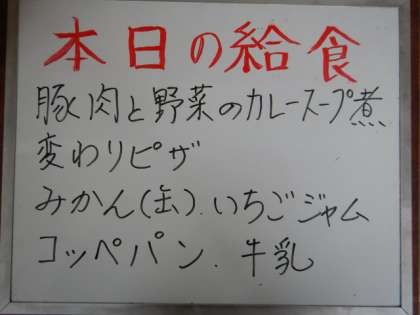 本日の給食
豚肉と野菜のカレースープ煮
変わりピザ
みかん(缶).いちごジャム
コッペパン.牛乳